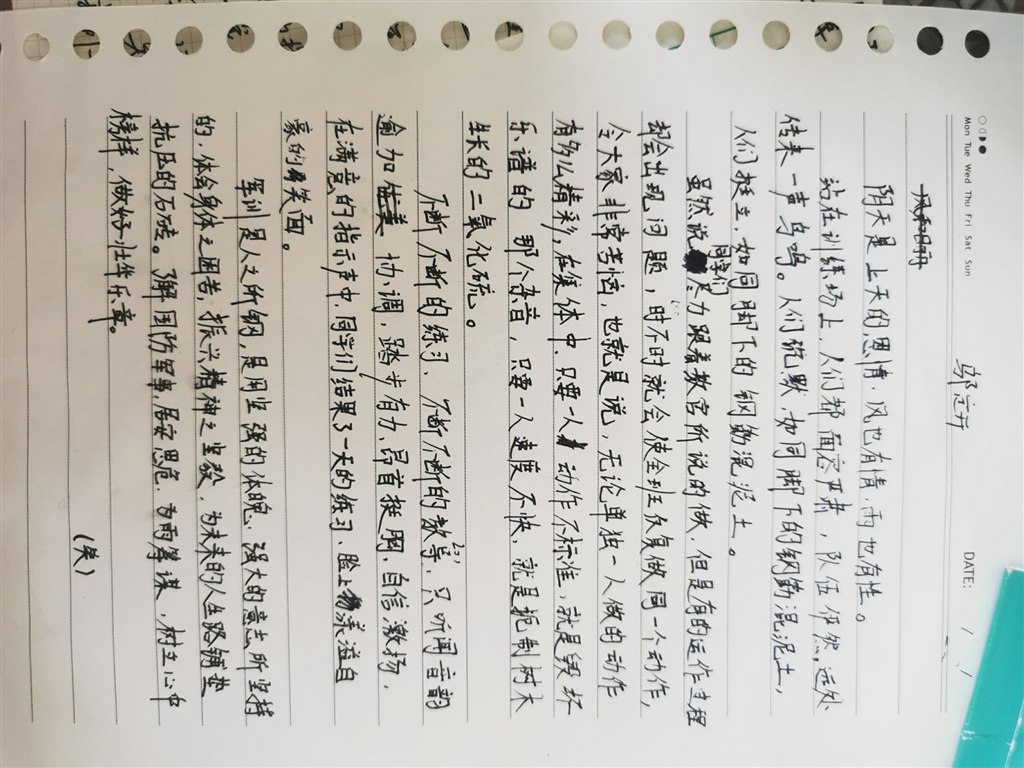 Mon Tue Wed Thu Fri Sat Sun
DATE: / /
阴天是上天的恩情,风也有情,雨也有性。
站在训练场上,人们都面容严肃,队伍俨然,远处
传来一声鸟鸣。人们沉默,如同脚下的钢筋混泥土,
人们挺立,如同脚下的钢筋混泥土。
虽然说同学们尽力跟着教官所说的做,但是有的运作过程
却会出现问题,时不时就会使全班反复做同一个动作,
令大家非常苦恼,也就是说,无论单独一人做的动作
有多么精彩,在集体中,只要一人动作不标准,就是毁坏
乐谱的那个杂音,只要一人速度不快,就是扼制树木
生长的二氧化硫。
不断不断的练习,不断不断的教导,只听闻音韵
逾加协调,踏步有力,昂首挺胸,自信激扬,
在满意的指示声中,同学们结果了一天的练习,脸上漾溢自
豪的笑面。
军训是人之所钢,是用坚强的体魄、强大的意志所坚持
的,体会身体之困苦,振兴精神之坚毅,为未来的人生路铺垫
抗压的石砖。了解国防军事,居安思危,为雨筹谋,树立心中
榜样,做好壮年乐章。
(失)